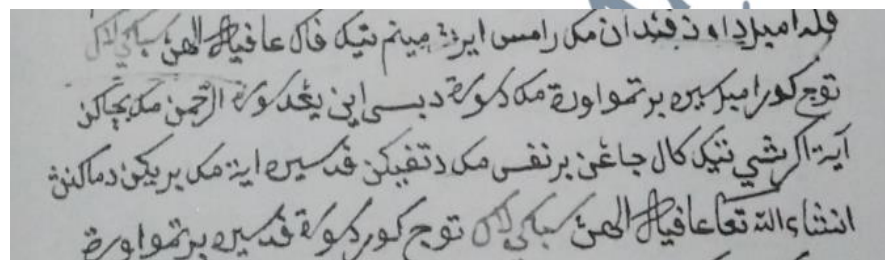 امبل داون فندان مک رامس ايرڽ مينم تيک فاک عافياله الهن سباکي لاک
توج کور امبل سيره برتمو اورة مک دسورة دبسي اين يڠد سورة الرحمن مک بچاکن
آية اکرسي تيک کال جاڠن برنفس مک دتفيکن فد سيره ايت مک بريکن دماکنڽ
انشاء الله تعا عافياله الهن سباکي لاک توج کور دسورة فد سيره برتمو اورة